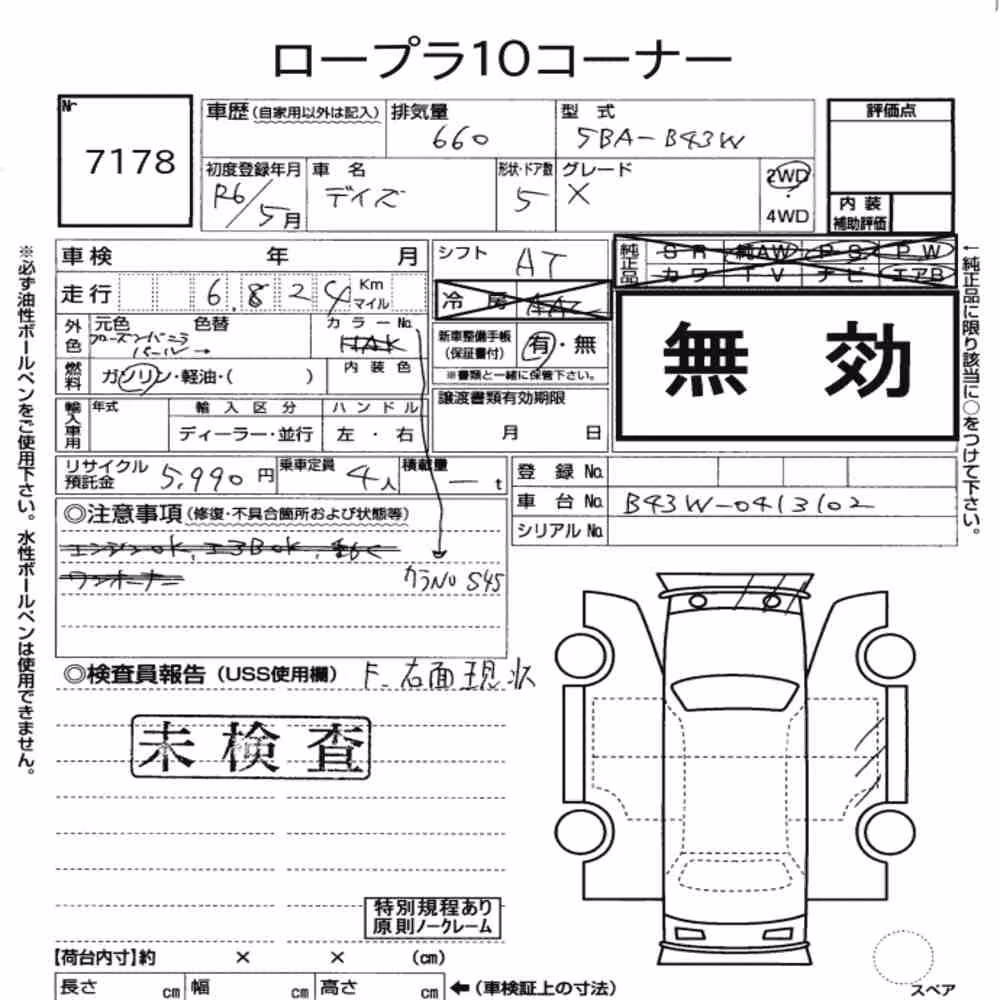 ロープラ10コーナー
Nr 7178
車歴(自家用以外は記入) 排気量 660 型 式 5BA-B43W 評価点
初度登録年月 R6/5月 車 名 デイズ 形状・ドア数 5 グレード X 2WD 4WD
内 装 補助評価
車検 年 月 シフト AT 純正品 S R 純AW P S P W
カワ T V ナビ エアB
走行 6,824 Km マイル 冷 房 AAC
無 効
外色 元色 色替 カラーNo.
新車整備手帳(保証書付) 有・無
※書類と一緒に保管下さい。
燃料 ガソリン・軽油・( ) 内装色
輸入車用 年式 輸入区分 ハンドル 譲渡書類有効期限
ディーラー・並行 左・右 月 日
リサイクル預託金 5,990円 乗車定員 4人 積載量 ー t 登 録 No.
車 台 No. B43W-0413102
シリアル No.
◎注意事項(修復・不具合箇所および状態等)
エンジンok、エアBok、
ワンオーナー カラNo S45
◎検査員報告(USS使用欄) F、右面現状
未検査
特別規程あり
原則ノークレーム
【荷台内寸】約 × × (cm)
長さ cm 幅 cm 高さ cm ←(車検証上の寸法)
スペア
※必ず油性ボールペンをご使用下さい。水性ボールペンは使用できません。
←純正品に限り該当に○をつけて下さい。